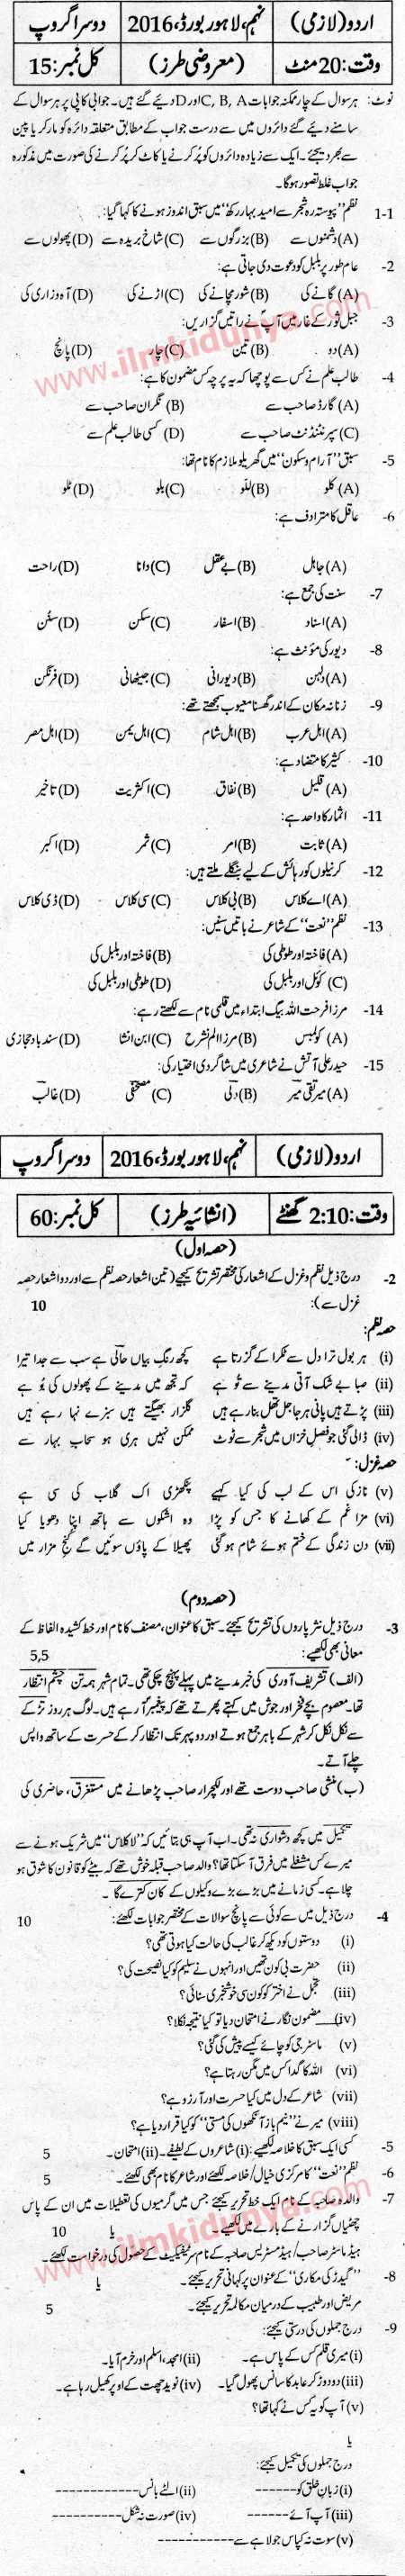 اردو (لازمی) نہم، لاہور بورڈ، 2016 دوسرا گروپ
وقت: 20 منٹ (معروضی طرز) کل نمبر: 15
نوٹ: ہر سوال کے چار ممکنہ جوابات C, B, A اور D دیئے گئے ہیں۔ جوابی کاپی پر ہر سوال کے
سامنے دیئے گئے دائروں میں سے درست جواب کے مطابق متعلقہ دائرہ کو مارکر یا پین
سے بھر دیجئے۔ ایک سے زیادہ دائروں کو پُر کرنے یا کاٹ کر پُر کرنے کی صورت میں مذکورہ
جواب غلط تصور ہوگا۔
1-1 نظم "پیوستہ رہ شجر سے امید بہار رکھ" میں سبق اندوز ہونے کا کہا گیا:
(A) دشمنوں سے (B) بزرگوں سے (C) شاخ بریدہ سے (D) پھولوں سے
2- عام طور پر بلبل کو دعوت دی جاتی ہے:
(A) گانے کی (B) شور مچانے کی (C) اڑنے کی (D) آہ و زاری کی
3- جبل ثور کے غار میں آپؐ نے راتیں گزاریں:
(A) دو (B) تین (C) چار (D) پانچ
4- طالب علم نے کس سے پوچھا کہ یہ پرچہ کس مضمون کا ہے:
(A) گارڈ صاحب سے (B) نگران صاحب سے
(C) سپرنٹنڈنٹ صاحب سے (D) کسی طالب علم سے
5- سبق "آرام و سکون" میں گھریلو ملازم کا نام تھا:
(A) کلو (B) للو (C) بلو (D) ٹلو
6- عاقل کا مترادف ہے:
(A) جاہل (B) بے عقل (C) دانا (D) راحت
7- سنت کی جمع ہے:
(A) اسناد (B) اسفار (C) سکن (D) سنن
8- دیور کی مؤنث ہے:
(A) دلہن (B) دیورانی (C) جیٹھانی (D) فرنگن
9- زنانہ مکان کے اندر گھسنا معیوب سمجھتے تھے:
(A) اہل عرب (B) اہل شام (C) اہل یمن (D) اہل مصر
10- کثیر کا متضاد ہے:
(A) قلیل (B) نفاق (C) اکثریت (D) تاخیر
11- اثمار کا واحد ہے:
(A) ثابت (B) امر (C) ثمر (D) اکبر
12- کرنیلوں کو رہائش کے لیے بنگلے ملتے ہیں:
(A) اے کلاس (B) بی کلاس (C) سی کلاس (D) ڈی کلاس
13- نظم "نعت" کے شاعر نے باتیں سنیں:
(A) فاختہ اور طوطی کی (B) فاختہ اور بلبل کی
(C) کوئل اور بلبل کی (D) طوطی اور بلبل کی
14- مرزا فرحت اللہ بیگ ابتداء میں قلمی نام سے لکھتے رہے:
(A) کولمبس (B) مرزا الم نشرح (C) ابن انشا (D) سند باد حجازی
15- حیدر علی آتش نے شاعری میں شاگردی اختیار کی:
(A) میر تقی میر (B) ولی (C) مصحفی (D) غالب
اردو (لازمی) نہم، لاہور بورڈ، 2016 دوسرا گروپ
وقت: 2:10 گھنٹے (انشائیہ طرز) کل نمبر: 60
(حصہ اول)
2- درج ذیل نظم و غزل کے اشعار کی مختصر تشریح کیجیے (تین اشعار حصہ نظم سے اور دو اشعار حصہ
غزل سے): 10
حصہ نظم:
(i) ہر بول ترا دل سے ٹکرا کے گزرتا ہے کچھ رنگ بیاں حالی ہے سب سے جدا تیرا
(ii) صبا بے شک آتی مدینے سے تو ہے کہ تجھ میں مدینے کے پھولوں کی بو ہے
(iii) پڑتے ہیں پانی ہر جا جل تھل بنا رہے ہیں گلزار بھیگتے ہیں سبزے نہا رہے ہیں
(iv) ڈالی گئی جو فصل خزاں میں شجر سے ٹوٹ ممکن نہیں ہری ہو سحاب بہار سے
حصہ غزل:
(v) نازکی اس کے لب کی کیا کہیے پنکھڑی اک گلاب کی سی ہے
(vi) مزا غم کے کھانے کا جس کو پڑا وہ اشکوں سے ہاتھ اپنا دھویا کیا
(vii) دن زندگی کے ختم ہوئے شام ہوگئی پھیلا کے پاؤں سوئیں گے کنج مزار میں
(حصہ دوم)
3- درج ذیل نثر پاروں کی تشریح کیجئے۔ سبق کا عنوان، مصنف کا نام اور خط کشیدہ الفاظ کے
معانی بھی لکھیے: 5,5
(الف) تشریف آوری کی خبر مدینے میں پہلے پہنچ چکی تھی۔ تمام شہر ہمہ تن چشم انتظار
تھا۔ معصوم بچے فخر اور جوش میں کہتے پھرتے تھے کہ پیغمبر آ رہے ہیں۔ لوگ ہر روز تڑکے
سے نکل نکل کر شہر کے باہر جمع ہوتے اور دوپہر تک انتظار کر کے حسرت کے ساتھ واپس
چلے آتے۔
(ب) منشی صاحب دوست تھے اور لکچرار صاحب پڑھانے میں مستغرق، حاضری کی
تکمیل میں کچھ دشواری نہ تھی۔ اب آپ ہی بتائیں کہ "لا کلاس" میں شریک ہونے سے
میرے کس مشغلے میں فرق آسکتا تھا؟ والد صاحب قبلہ خوش تھے کہ بیٹے کو قانون کا شوق ہو
چلا ہے۔ کسی زمانے میں بڑے بڑے وکیلوں کے کان کترے گا۔
4- درج ذیل میں سے کوئی سے پانچ سوالات کے مختصر جوابات لکھئے: 10
(i) دوستوں کو دیکھ کر غالب کی حالت کیا ہوتی تھی؟
(ii) حضرت بی کون تھیں اور انہوں نے سلیم کو کیا نصیحت کی؟
(iii) تجمل نے اختر کو کون سی خوشخبری سنائی؟
(iv) مضمون نگار نے امتحان دیا تو کیا نتیجہ نکلا؟
(v) ماسٹر جی کو چائے کیسے پیش کی گئی؟
(vi) اللہ کا گدا کس میں مگن رہتا ہے؟
(vii) شاعر کے دل میں کیا حسرت اور آرزو ہے؟
(viii) میر نے "نیم باز آنکھوں کی مستی" کو کیا قرار دیا ہے؟
5- کسی ایک سبق کا خلاصہ لکھیے: (i) شاعروں کے لطیفے۔ (ii) امتحان۔ 5
6- نظم "نعت" کا مرکزی خیال/خلاصہ لکھئے اور شاعر کا نام بھی لکھئے۔ 5
7- والدہ صاحبہ کے نام ایک خط تحریر کیجئے جس میں گرمیوں کی تعطیلات میں ان کے پاس
چھٹیاں گزارنے کے بارے میں لکھیے۔ یا 10
ہیڈ ماسٹر صاحب/ہیڈ مسٹریس صاحبہ کے نام سرٹیفکیٹ کے حصول کی درخواست لکھئے۔
8- "گیدڑ کی مکاری" کے عنوان پر کہانی تحریر کیجئے۔ یا
مریض اور طبیب کے درمیان مکالمہ تحریر کیجئے۔ 5
9- درج جملوں کی درستی کیجئے:
(i) میری قلم کس کے پاس ہے۔ (ii) امجد، اسلم اور خرم آیا۔
(iii) دوڑ دوڑ کر عابد کا سانس پھول گیا۔ (iv) نوید چھت کے اوپر کھیل رہا ہے۔
(v) آپ کو یہ کس نے کہا تھا؟
یا
درج جملوں کی تکمیل کیجئے:
(i) زبان خلق کو------ (ii) الٹے بانس ------------
(iii) آپ آئے------ (iv) صورت نہ شکل ----------
(v) سوت نہ کپاس جولاہے سے ------------
www.ilmkidunya.com
www.ilmkidunya.com